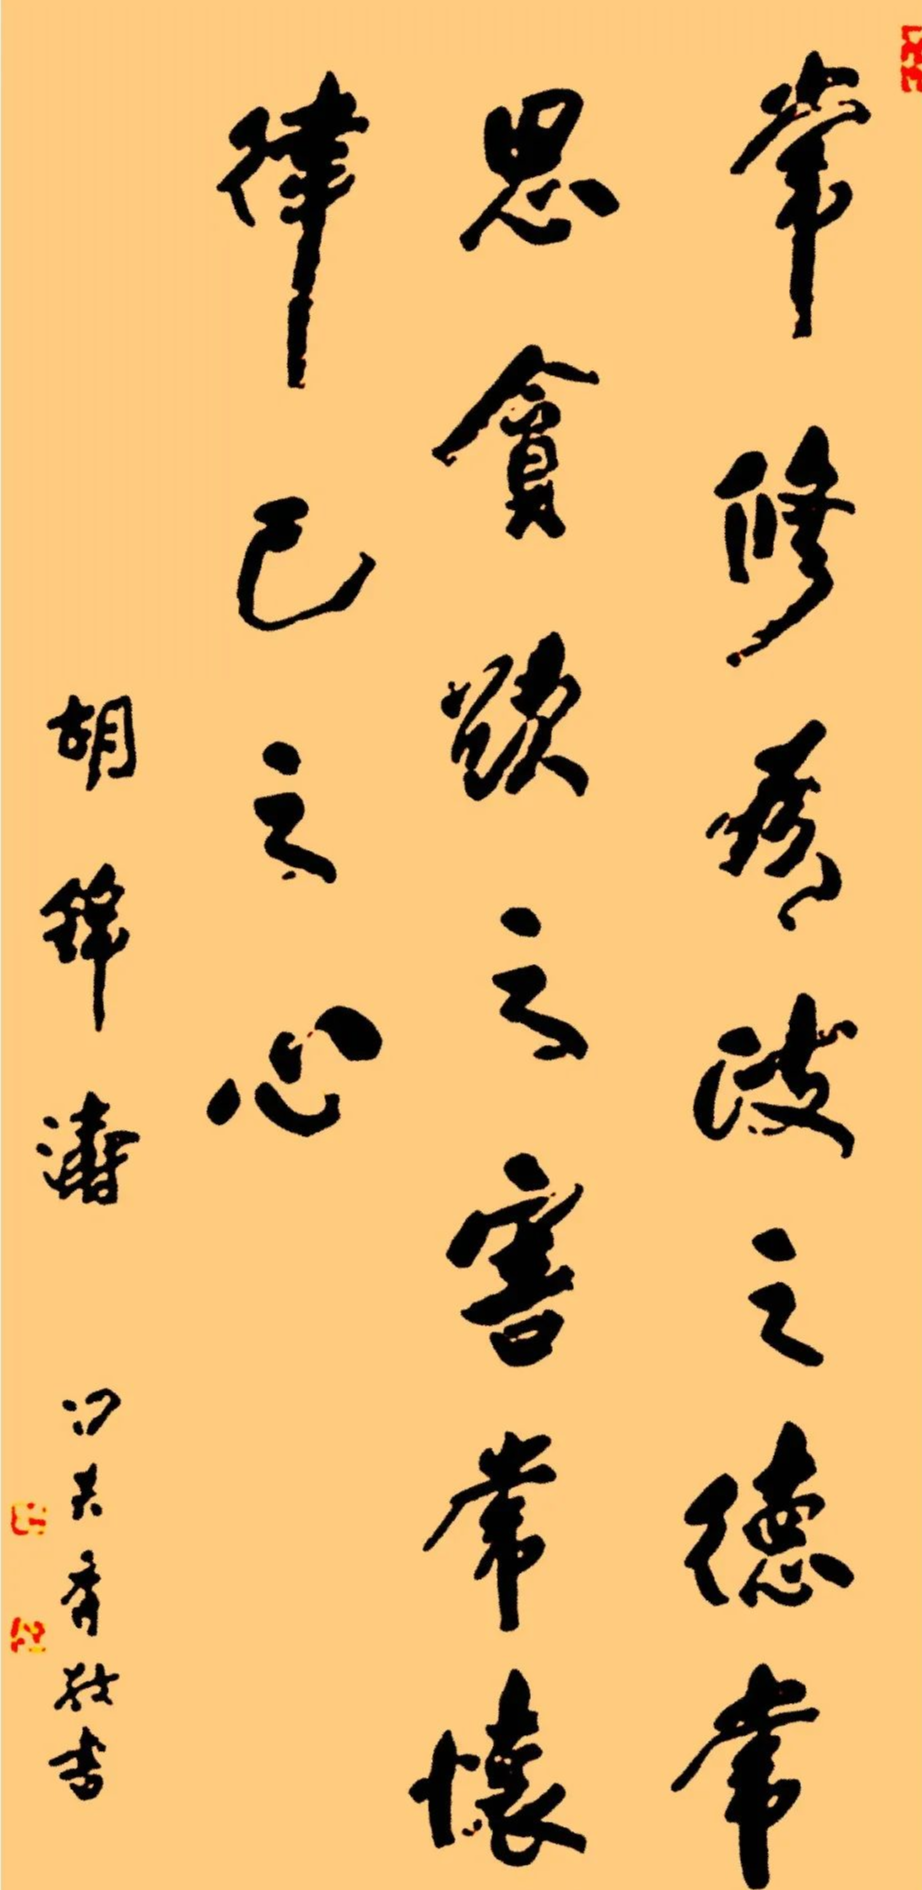 常修之德常
思貪欲之害常懷
律己之心
胡錦濤
秀敬書